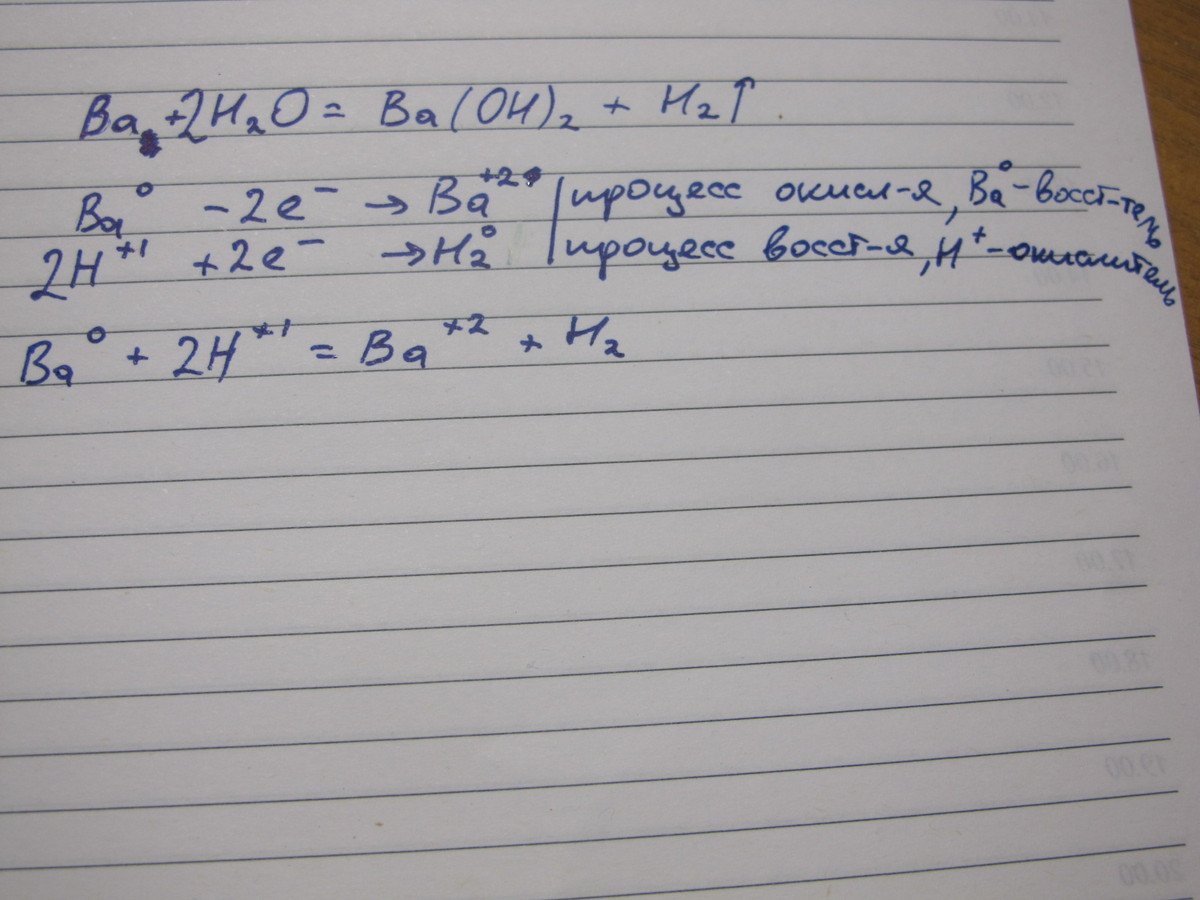 Ba + 2H₂O = Ba(OH)₂ + H₂↑
Ba⁰ - 2e⁻ → Ba⁺² | процесс окисл-я, Ba⁰ - восст-тель
2H⁺¹ + 2e⁻ → H₂⁰ | процесс восст-я, H⁺ - окислитель
Ba⁰ + 2H⁺¹ = Ba⁺² + H₂
15.00
16.00
17.00
18.00
19.00
20.00